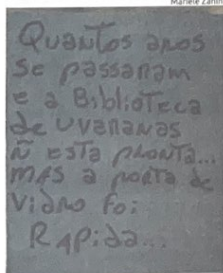 Mariele Zanin
Quantos anos
se passaram
e a Biblioteca
de Uvaranas
ñ está pronta...
mas a porta de
vidro foi
Rápida...